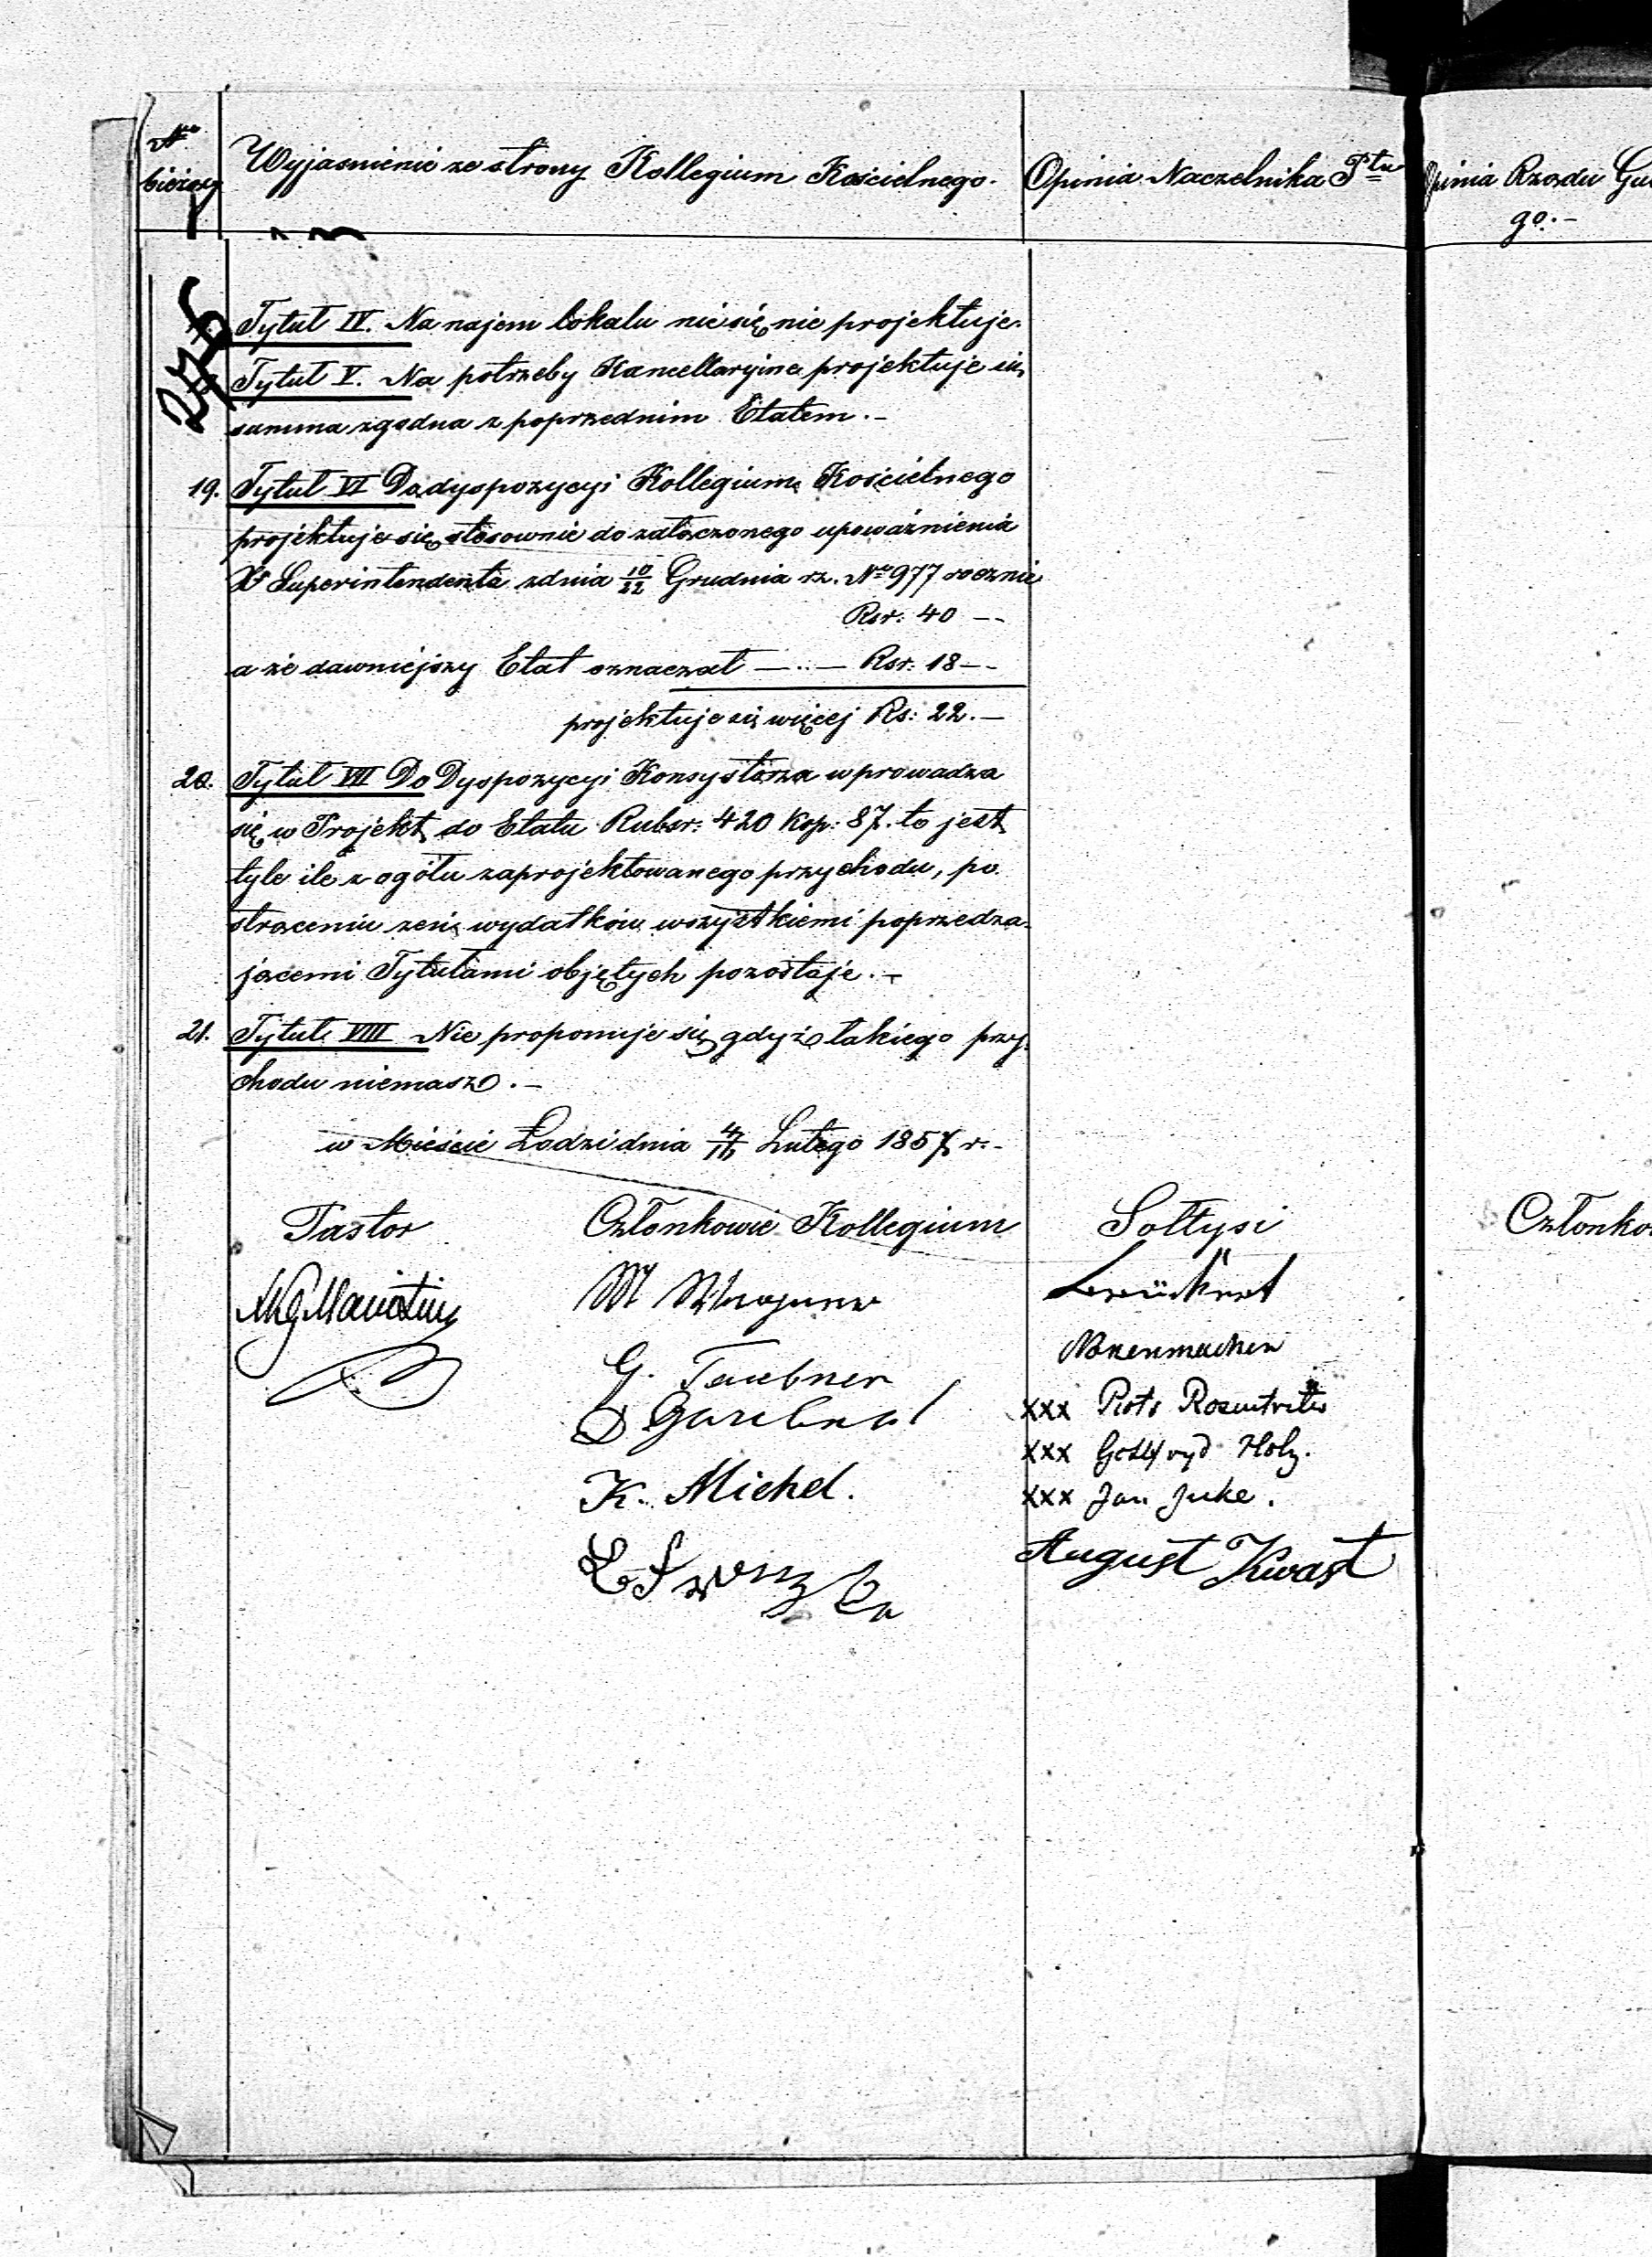 Nro bieżący
Wyjasnienie ze strony Kollegium Kościelnego.
Opinia Naczelnika Ptu
Opinia Rządu Gu
go.-
Tytuł IV. Na najem lokalu nic się nie projektuje.
Tytuł V. Na potrzeby Kancellaryine projektuje się
summa zgodna z poprzednim Etatem.-
19. Tytuł VI Do dyspozycyi Kollegium Kościelnego
projektuje się stosownie do załączonego upoważnienia
X Superintendenta z dnia 10/22 Grudnia rz. No 977 rocznie
Rsr: 40 --
a że dawniejszy Etat oznaczał —..— Rsr: 18 --
projektuje się więcej Rs: 22.—
20. Tytuł VII Do Dyspozycyi Konsystorza wprowadza
się w Projekt do Etatu Rubsr: 420 kop: 87. to jest
tyle ile z ogółu zaprojektowanego przychodu, po
strąceniu zeń wydatków wszystkiemi poprzedza-
jącemi Tytułami objętych pozostaje.-
21. Tytuł VIII Nie proponuje się gdyż takiego przy-
chodu niemasz.-
w Mieście Łodzi dnia 4/16 Lutego 1857 r.-
Pastor
Członkowie Kollegium
Sołtysi
Członko
G. Taubner
K. Michel.
xxx Piotr
xxx Gottfryd Holz.
xxx Jan Juke.
August Kwast